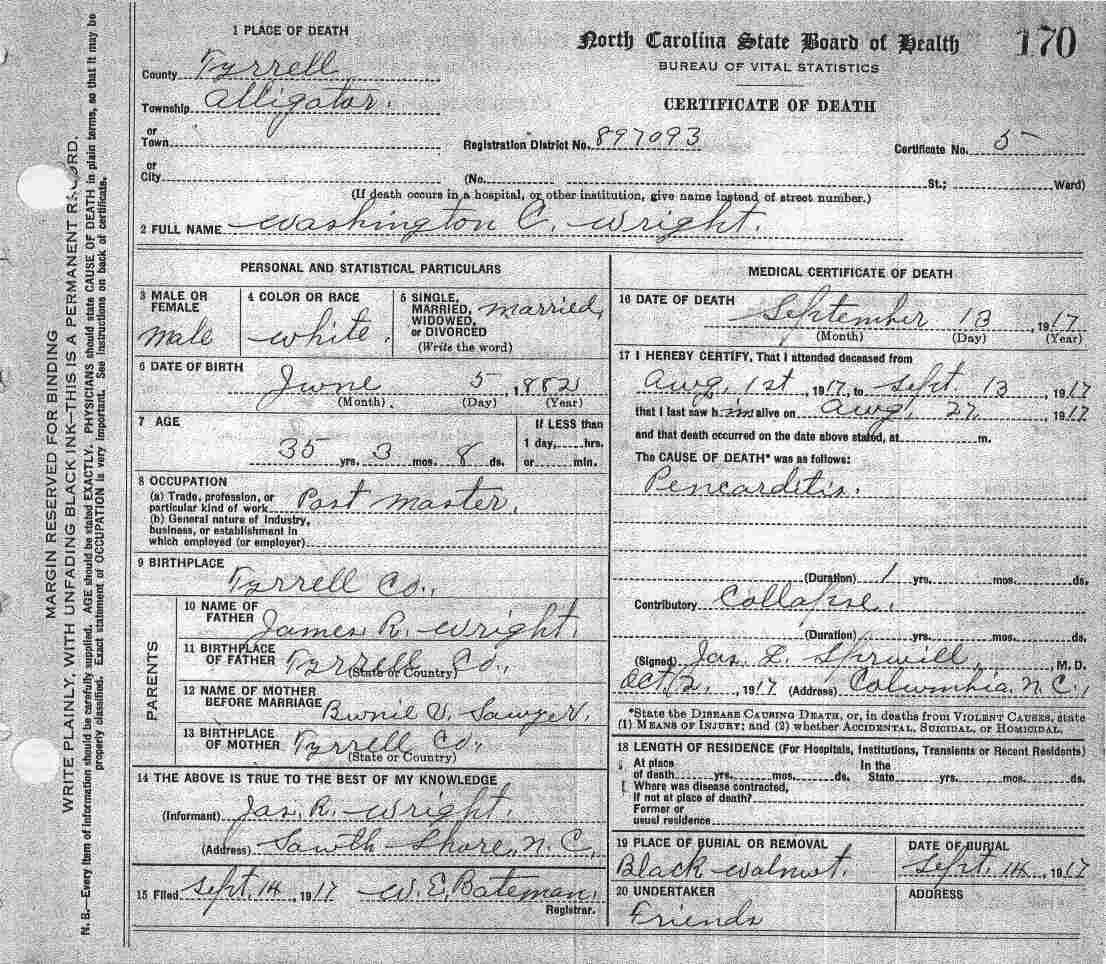 1 PLACE OF DEATH
North Carolina State Board of Health 170
BUREAU OF VITAL STATISTICS
CERTIFICATE OF DEATH
County Tyrrell
Township Alligator.
or
Town
Registration District No. 897093 Certificate No. 5
or
City (No. St.; Ward)
(If death occurs in a hospital, or other institution, give name instead of street number.)
2 FULL NAME Washington C. Wright.
PERSONAL AND STATISTICAL PARTICULARS
3 MALE OR FEMALE male
4 COLOR OR RACE white.
5 SINGLE, MARRIED, WIDOWED, or DIVORCED married,
(Write the word)
6 DATE OF BIRTH June 5, 1882
(Month) (Day) (Year)
7 AGE
35 yrs. 3 mos. 8 ds.
If LESS than
1 day, hrs.
or min.
8 OCCUPATION
(a) Trade, profession, or
particular kind of work Post master.
(b) General nature of Industry,
business, or establishment in
which employed (or employer)
9 BIRTHPLACE Tyrrell Co.,
PARENTS
10 NAME OF FATHER James R. Wright.
11 BIRTHPLACE OF FATHER Tyrrell Co.,
(State or Country)
12 NAME OF MOTHER BEFORE MARRIAGE V. Sawyer.
13 BIRTHPLACE OF MOTHER Tyrrell Co.
(State or Country)
14 THE ABOVE IS TRUE TO THE BEST OF MY KNOWLEDGE
(Informant) Jas. R. Wright.
(Address) South Shore, N.C.,
15 Filed Sept. 14, 1917 W. E. Bateman.
Registrar.
MEDICAL CERTIFICATE OF DEATH
16 DATE OF DEATH
September 13, 1917
(Month) (Day) (Year)
17 I HEREBY CERTIFY, That I attended deceased from
Aug. 1st, 1917, to Sept. 13 1917
that I last saw him alive on Aug. 27. 1917
and that death occurred on the date above stated, at m.
The CAUSE OF DEATH* was as follows:
Pericarditis.
(Duration) 1 yrs. mos. ds.
Contributory Collapse.
(Duration) yrs. mos. ds.
(Signed) Jas. L. Spruill, M. D.
Oct. 2, 1917 (Address) Columbia, N.C.,
*State the DISEASE CAUSING DEATH, or, in deaths from VIOLENT CAUSES, state
(1) MEANS OF INJURY; and (2) whether ACCIDENTAL, SUICIDAL, or HOMICIDAL.
18 LENGTH OF RESIDENCE (For Hospitals, Institutions, Transients or Recent Residents)
At place In the
of death yrs. mos. ds. State yrs. mos. ds.
Where was disease contracted,
If not at place of death?
Former or
usual residence
19 PLACE OF BURIAL OR REMOVAL
Black Walnut.
DATE OF BURIAL
Sept. 14, 1917
20 UNDERTAKER
Friends
ADDRESS
MARGIN RESERVED FOR BINDING
WRITE PLAINLY, WITH UNFADING BLACK INK—THIS IS A PERMANENT RECORD.
N. B.—Every item of information should be carefully supplied. AGE should be stated EXACTLY. PHYSICIANS should state CAUSE OF DEATH in plain terms, so that it may be
properly classified. Exact statement of OCCUPATION is very important. See instructions on back of certificate.